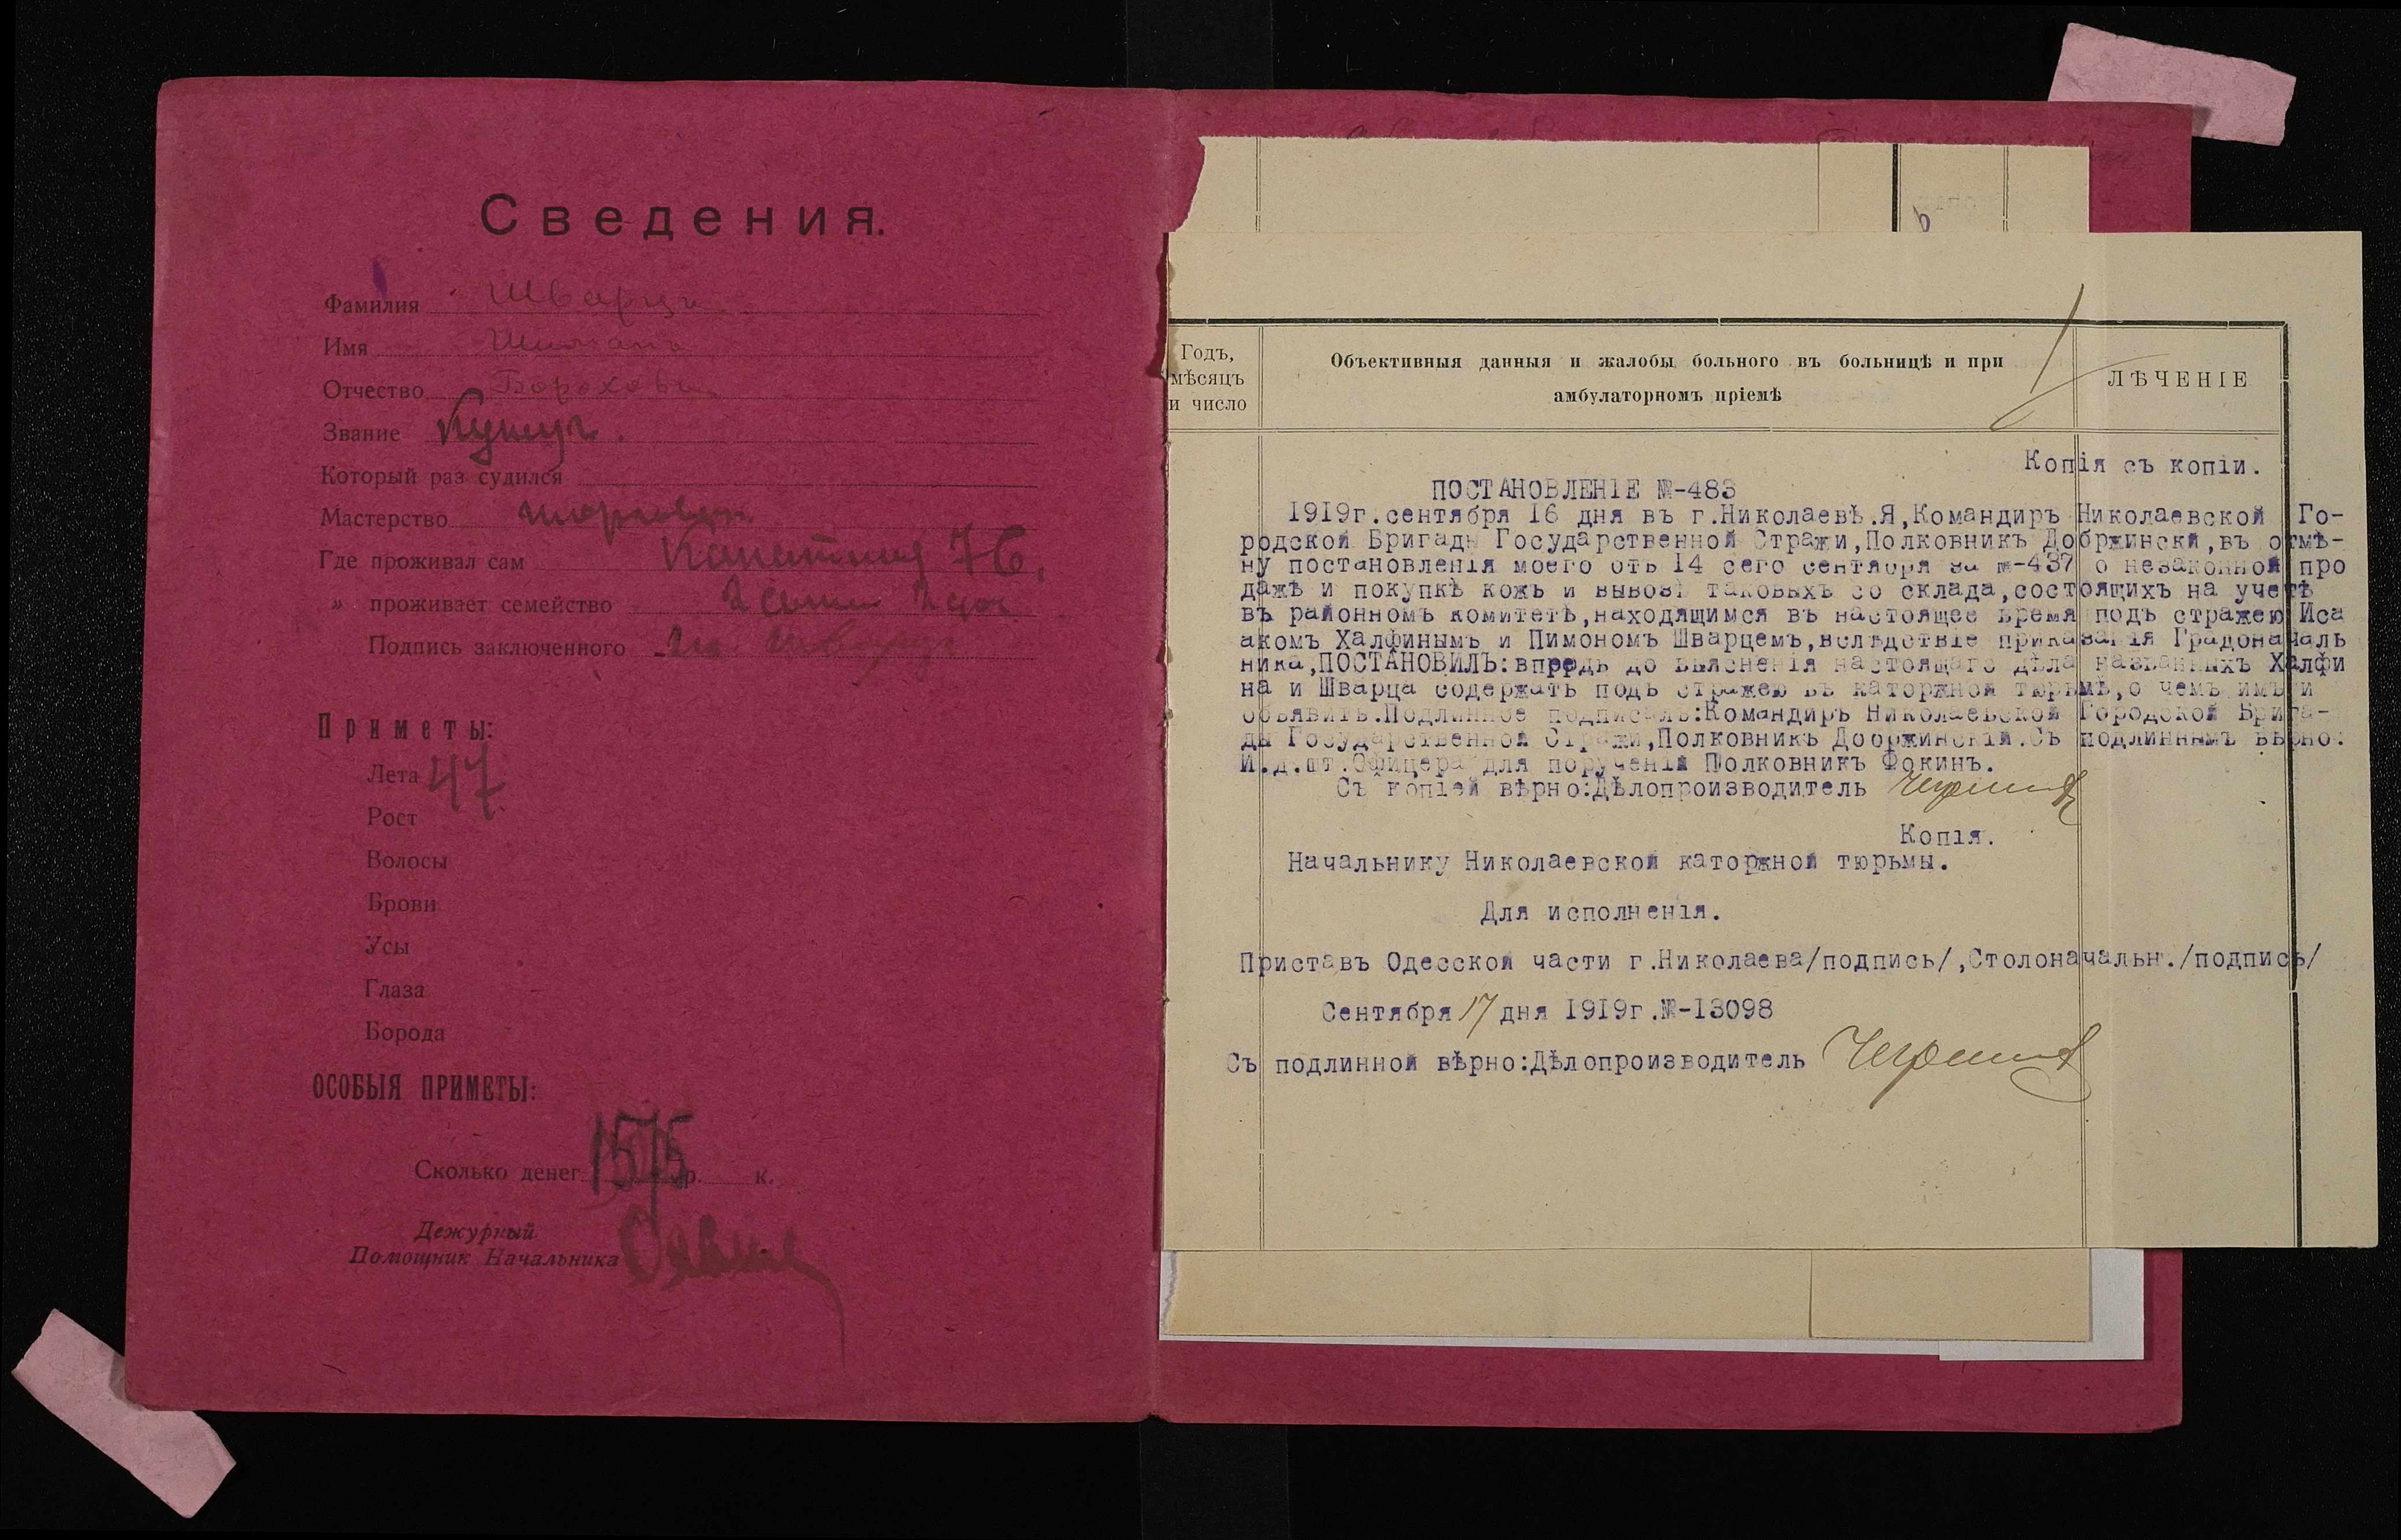 Сведения.
Фамилия Шварцъ
Имя Шимонъ
Отчество Бороховъ
Звание Купецъ.
Который раз судился
Мастерство торговецъ
Где проживал сам Канатная 76.
„ проживает семейство
Подпись заключенного
Приметы:
Лета 47
Рост
Волосы
Брови
Усы
Глаза
Борода
ОСОБЫЯ ПРИМЕТЫ:
Сколько денег 1575 р. к.
Дежурный
Помощник Начальника
Годъ,
мѣсяцъ
и число
Объективныя данныя и жалобы больного въ больницѣ и при
амбулаторномъ пріемѣ
ЛѢЧЕНІЕ
Копія съ копіи.
ПОСТАНОВЛЕНІЕ №-483
1919г.сентября 16 дня въ г.Николаевѣ.Я,Командиръ Николаевской Го-
родской Бригады Государственной Стражи,Полковникъ Добржински,въ отмѣ-
ну постановленія моего отъ 14 сего сентября за №-437 о незаконной про
дажѣ и покупкѣ кожъ и вывозѣ таковыхъ со склада,состоящихъ на учетѣ
въ районномъ комитетѣ,находящимся въ настоящее время подъ стражею Иса
акомъ Халфинымъ и Пимономъ Шварцемъ,вслѣдствіе приказанія Градоначаль
ника,ПОСТАНОВИЛЪ:впредь до выясненія настоящаго дѣла названныхъ Халфи
на и Шварца содержать подъ стражею въ каторжной тюрьмѣ,о чемъ имъ и
объявить.Подлинное подписалъ:Командиръ Николаевской Городской Брига-
ды Государственной Стражи,Полковникъ Добржинскій.Съ подлиннымъ вѣрно:
И.д.шт.Офицера для порученій Полковникъ Фокинъ.
Съ копіей вѣрно:Дѣлопроизводитель
Копія.
Начальнику Николаевской каторжной тюрьмы.
Для исполненія.
Приставъ Одесской части г.Николаева/подпись/,Столоначальн./подпись/
Сентября 17 дня 1919г.№-13098
Съ подлинной вѣрно:Дѣлопроизводитель